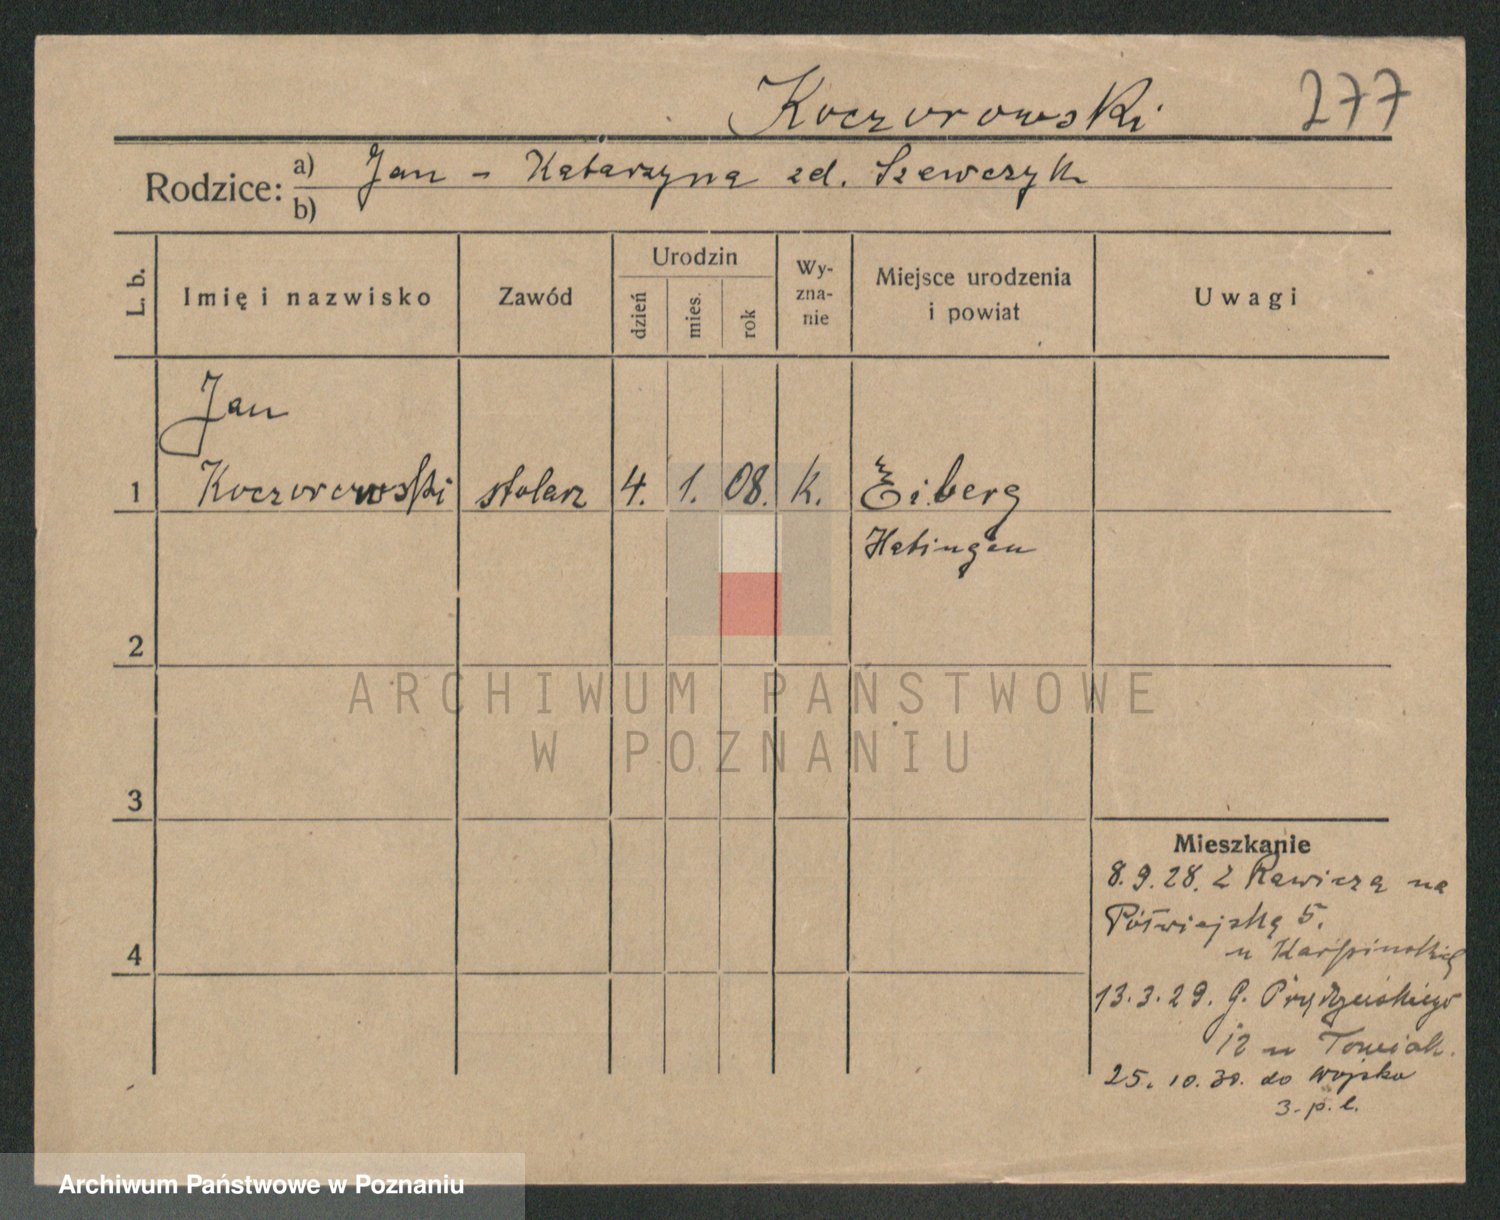 Koczorowski 277
Rodzice: a) Jan - Katarzyna zd. Szewczyk
b)
L. b.
Imię i nazwisko
Zawód
Urodzin
dzień
mies.
rok
Wy-
zna-
nie
Miejsce urodzenia
i powiat
Uwagi
Jan
1 Koczorowski stolarz 4. 1. 08. k. Eiberg
Hatingen
2
ARCHIWUM PAŃSTWOWE
W POZNANIU
3
Mieszkanie
8.9.28. z Rawicza na
Półwiejską 5.
u Karpinskiej
4
13.3.29. G. Prądzyńskiego
12 u Towiak.
25.10.30. do wojska
3. p. l.
Archiwum Państwowe w Poznaniu